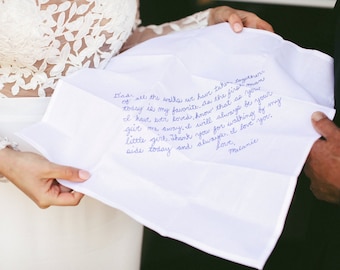 Dad, all the walks we have taken together
today is my favorite. As the first man
I have ever loved, know that as you
give me away, I will always be your
little girl. Thank you for walking by my
side today and always. I love you.
Love,
Melanie